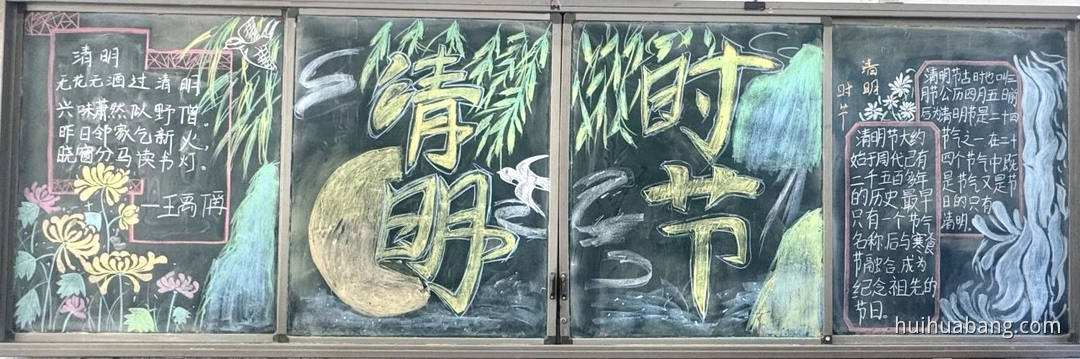 清明
无花无酒过清明
兴味萧然似野僧。
昨日邻家乞新火,
晓窗分与读书灯。
—王禹偁
清明
时节
清明
时节
清明节古时也叫三
月节公历四月五日前
后为清明节是二十四
节气之一在二十
四个节气中既
是节气又是节
日的只有
清明。
清明节大约
始于周代已有
二千五百多年
的历史最早
只有一个节气
名称后与寒食
节融合成为
纪念祖先的
节日。
huihuabang.com